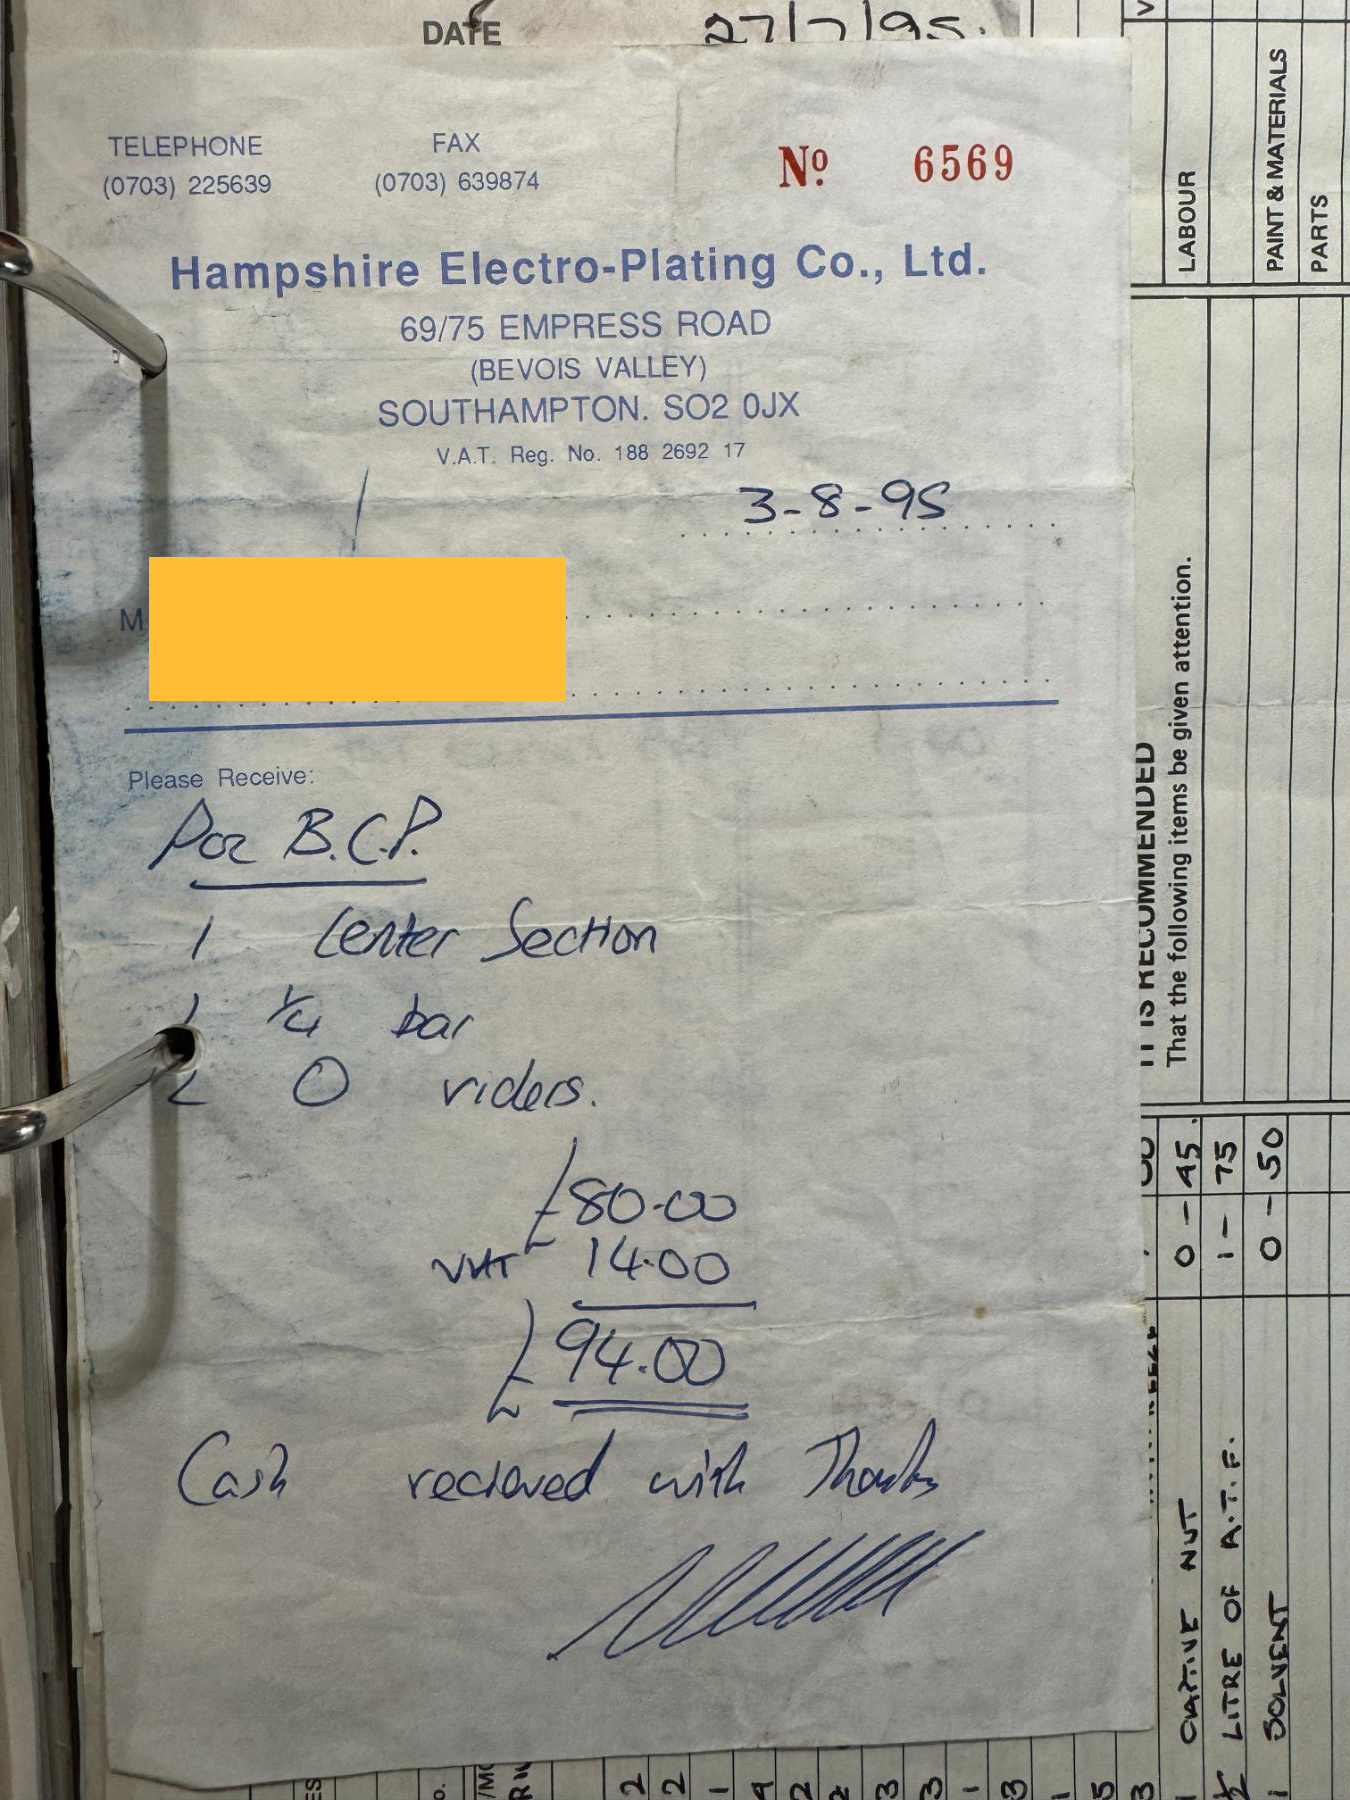 DATE 27/7/95.
TELEPHONE FAX
(0703) 225639 (0703) 639874
Nº 6569
Hampshire Electro-Plating Co., Ltd.
69/75 EMPRESS ROAD
(BEVOIS VALLEY)
SOUTHAMPTON. SO2 0JX
V.A.T. Reg. No. 188 2692 17
3-8-95
M
Please Receive:
For B.C.P.
1 Center Section
1 1/4 bar
2 O riders.
£80.00
VAT 14.00
£94.00
Cash recieved with Thanks
LABOUR
PAINT & MATERIALS
PARTS
IT IS RECOMMENDED
That the following items be given attention.
CAPTIVE NUT 0-45.
LITRE OF A.T.F. 1-75
1 SOLVENT 0-50